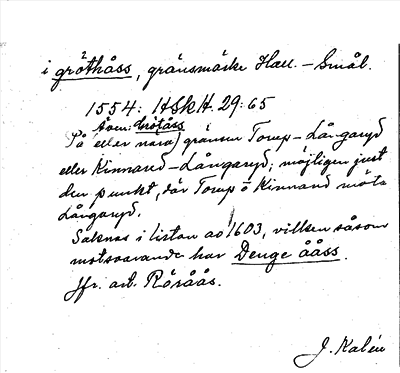 i gröthåss, gränsmärke Hall. – Smål.
1554: HSkH. 29:65
På eller nära gränsen Torup – Långaryd
eller Kinnared – Långaryd; möjligen just
den punkt, där Torup o Kinnared möta
Långaryd.
Saknas i listan ao 1603, vilken såsom
motsvarande har Denge ååss.
Jfr. art. Röråås.
J. Kalén